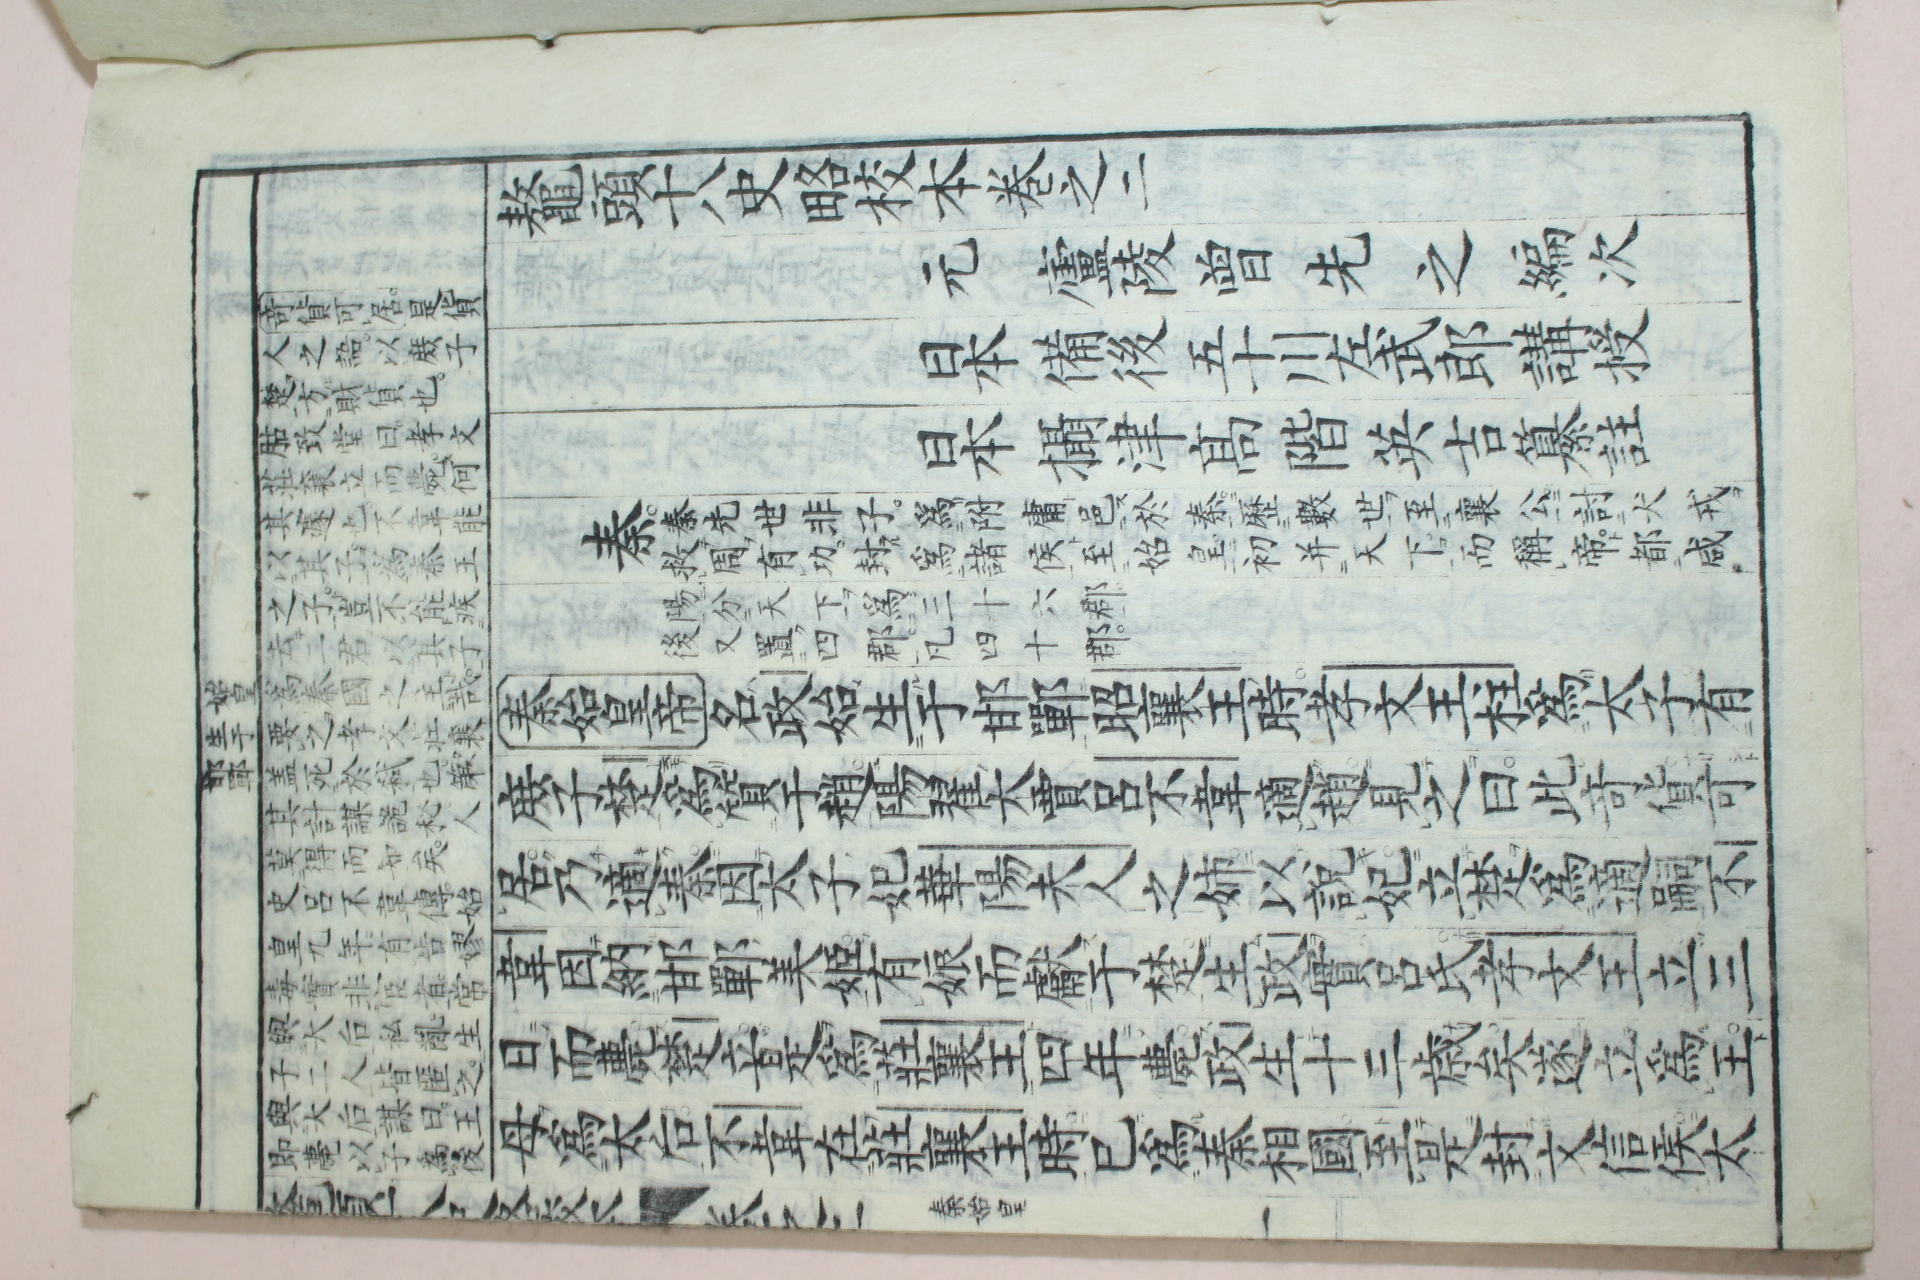 鼇頭十八史略校本卷之二
元　廬陵曾先之編次
日本　備後五十川左武郎講授
日本　攝津高階英吉纂註
秦
秦先世非子爲附庸邑於秦歷數世至襄公討犬戎
救周有功封爲諸侯至始皇初并天下而稱帝都咸
陽分天下爲三十六郡
後又置四郡凡四十郡
秦始皇帝名政始生于邯鄲昭襄王時孝文王柱爲太子有
庶子楚爲質于趙陽翟大賈呂不韋適趙見之曰此奇貨可
居乃適秦因太子妃華陽夫人之姊以說妃立楚爲適嗣不
韋因納邯鄲美姬有娠而獻于楚生政實呂氏孝文王立三
日而薨楚立是爲莊襄王四年薨政生十三歲矣遂立爲王
母爲太后不韋在莊襄王時已爲秦相國至是封文信侯太
始皇
生于
邯鄲
奇貨可居是貨
人之語以庶子
楚方財貨也
胡致堂曰孝文
莊襄立而薨何
其遽也不韋能
以其子爲秦王
之子豈不能疾
去二君以其子
爲秦國之主哉
要之孝文莊襄
蓋死於弑也第
其計謀詭秘人
莫得而知矣
史呂不韋傳始
皇九年有告嫪
毐實非宦者常
與大后私亂生
子二人皆匿之
與大后謀曰王
即薨以子爲後
鼇頭十八史略校本　卷之二
秦始皇
一